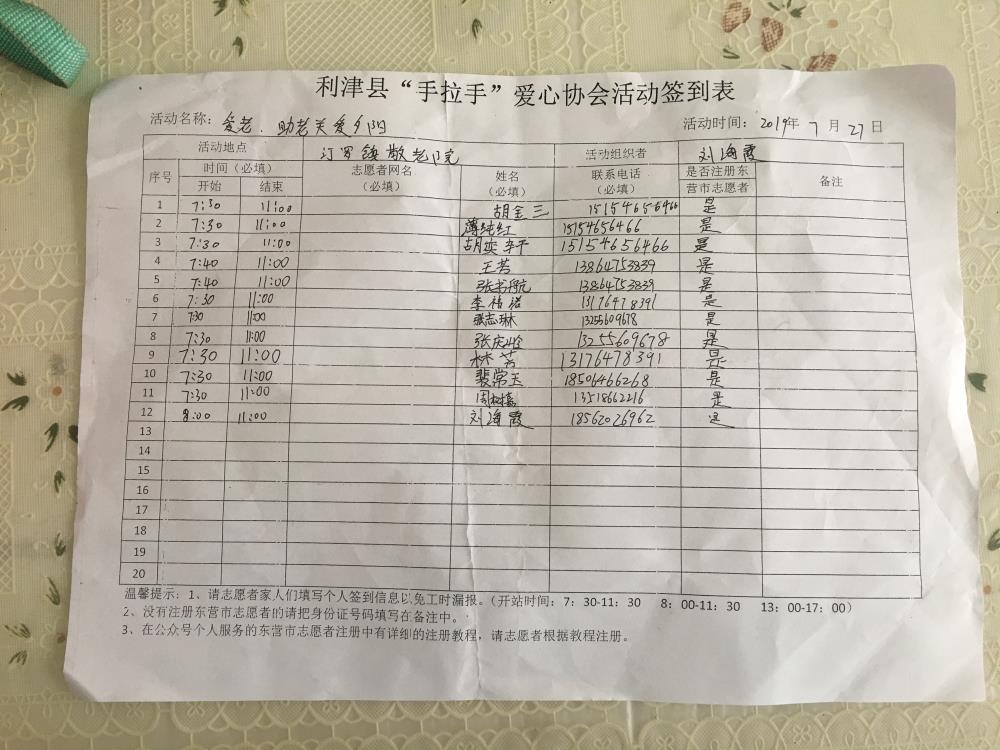 利津县“手拉手”爱心协会活动签到表
活动名称：爱老、助老关爱夕阳 活动时间：2019年7月27日
活动地点 汀罗镇敬老院 活动组织者 刘海霞
序号 时间（必填） 志愿者网名（必填） 姓名（必填） 联系电话（必填） 是否注册东营市志愿者 备注
开始 结束
1 7:30 11:00 胡金三 15154656466 是
2 7:30 11:00 薄纯红 15154656466 是
3 7:30 11:00 胡奕轩 15154656466 是
4 7:40 11:00 王芳 13864753839 是
5 7:40 11:00 张书航 13864753839 是
6 7:30 11:00 李 诺 13176478391 是
7 7:30 11:00 张志琳 13255609678 是
8 7:30 11:00 张庆 13255609678 是
9 7:30 11:00 林芳 13176478391 是
10 7:30 11:00 裴常玉 18506466268 是
11 7:30 11:00 周 13518662216 是
12 8:00 11:00 刘海霞 18562026962 是
13
14
15
16
17
18
19
20
温馨提示：1、请志愿者家人们填写个人签到信息以免工时漏报。（开站时间：7：30-11：30 8：00-11：30 13：00-17：00）
2、没有注册东营市志愿者的请把身份证号码填写在备注中。
3、在公众号个人服务的东营市志愿者注册中有详细的注册教程，请志愿者根据教程注册。